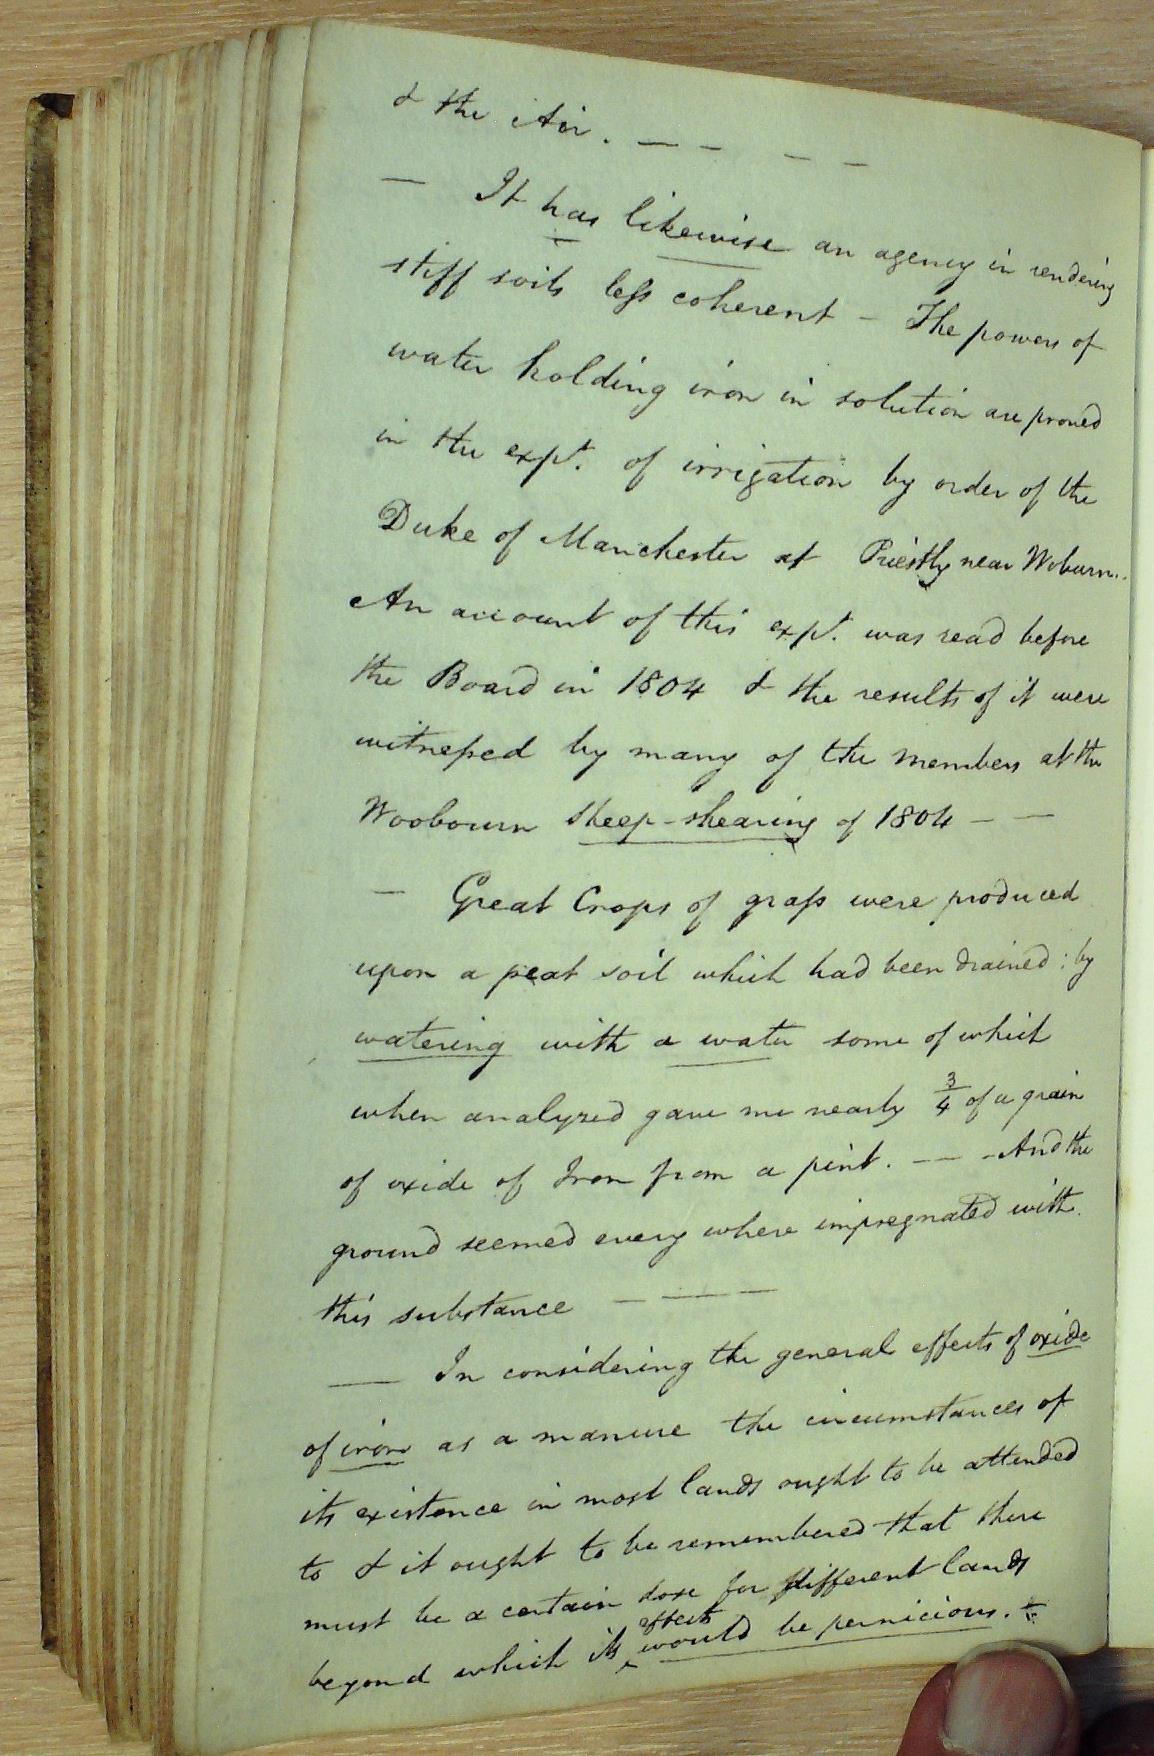 & the Air. — — — —
— It has likewise an agency in rendering
stiff soils less coherent – The powers of
water holding iron in solution are proved
in the expt. of irrigation by order of the
Duke of Manchester at Priestly near Woburn..
An account of this expt. was read before
the Board in 1804 & the results of it were
witnessed by many of the members at the
Woobourn sheep-shearing of 1804 – —
— Great Crops of grass were produced
upon a peat soil which had been drained: by
watering with a water some of which
when analyzed gave me nearly 3/4 of a grain
of oxide of Iron from a pint. — - And the
ground seemed every where impregnated with
this substance — — —
— In considering the general effects of oxide
of iron as a manure the circumstances of
its existence in most lands ought to be attended
to & it ought to be remembered that there
must be a certain dose for different lands
effects
beyond which its ‸ would be pernicious. +